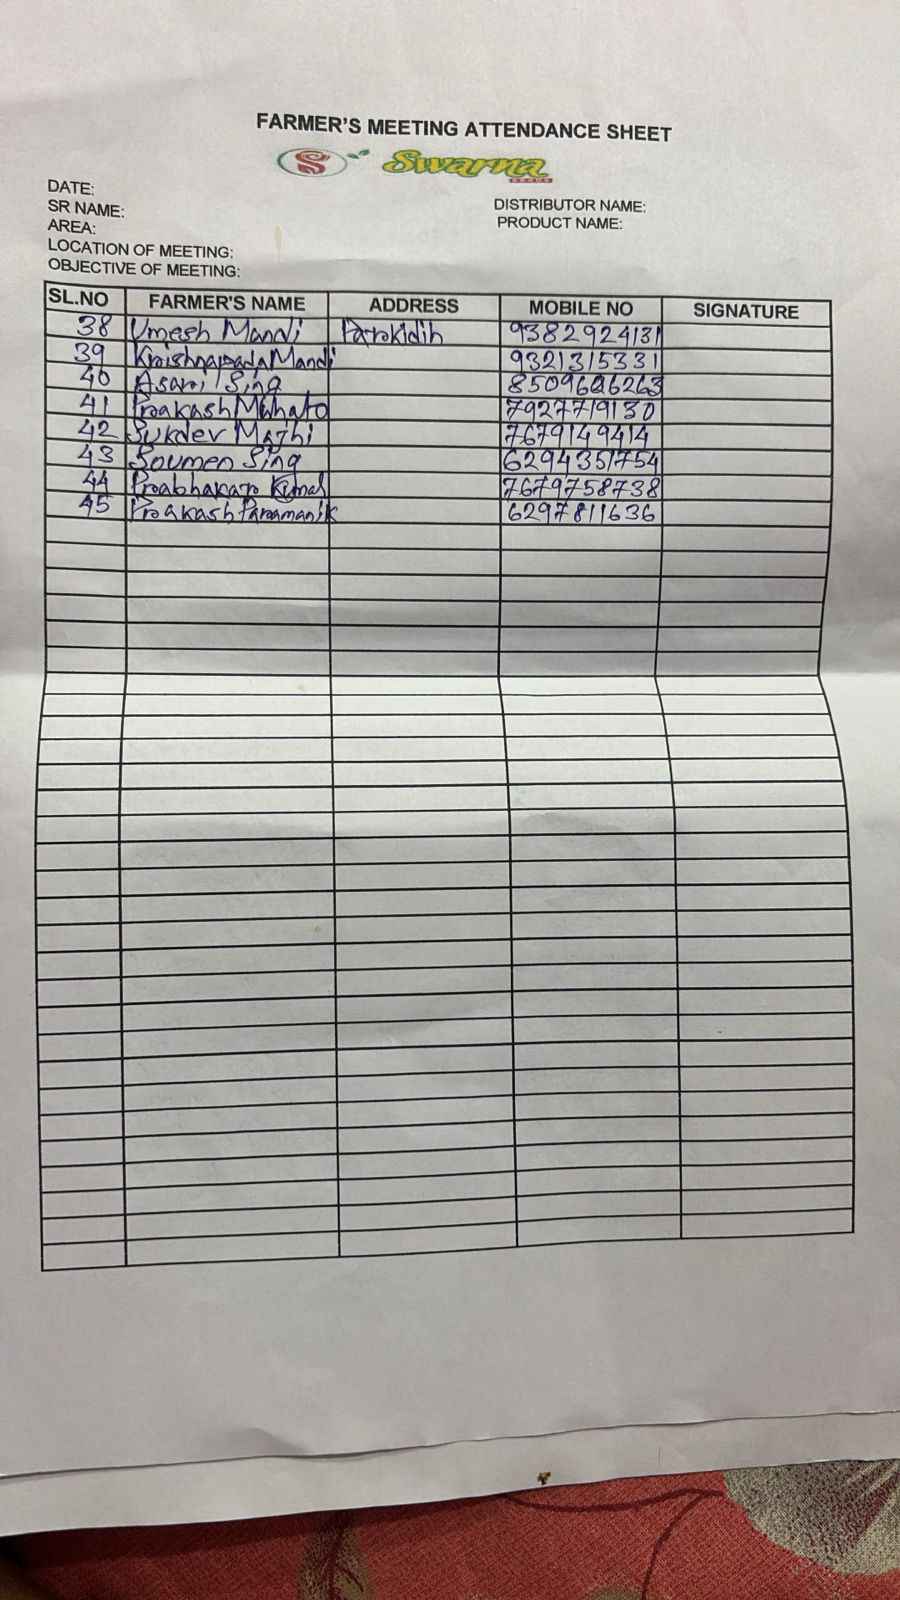 FARMER'S MEETING ATTENDANCE SHEET
S Swarna
DATE:
DISTRIBUTOR NAME:
SR NAME:
PRODUCT NAME:
AREA:
LOCATION OF MEETING:
OBJECTIVE OF MEETING:
SL.NO FARMER'S NAME ADDRESS MOBILE NO SIGNATURE
38 Umesh Mandi Parokidih 9382924131
39 Krishnapada Mandi 9321315331
40 Sing 8509626263
41 Prakash Mahato 7927719130
42 Sukdev Majhi 7679149414
43 Soumen Sing 6294351754
44 Prabhakar 7679758738
45 Prakash Paramanik 6297811636